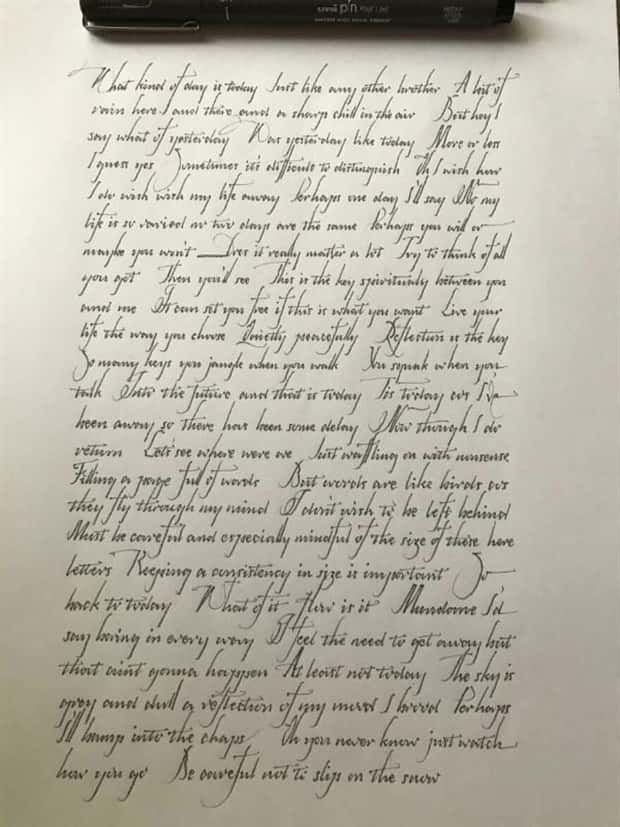 uni
What kind of day is today Just like any other brother A bit of
rain here I and there and a sharp chill in the air But hey I
say what of yesterday Was yesterday like today More or less
I guess yes Sometimes it's difficult to distinguish Oh I wish how
I do wish wish my life away Perhaps one day I'll say No my
life is so varied no two days are the same Perhaps you will or
maybe you won't Does it really matter a lot Try to think of all
you got Then you'll see This is the key spiritually between you
and me It can set you free if this is what you want Live your
life the way you choose Quietly peacefully Reflection is the key
So many keys you jangle when you walk You squeak when you
talk Into the future and that is today Tis today as I've
been away so there has been some delay Now though I do
return Let's see where were we Just waffling on with nonsense
Filling a page full of words But words are like birds as
they fly through my mind I don't wish to be left behind
Must be careful and especially mindful of the size of these here
letters Keeping a consistency in size is important So
back to today What of it How is it Mundane I'd
say boring in every way I feel the need to get away but
that aint gonna happen At least not today The sky is
grey and dull a reflection of my mood I brood Perhaps
I'll bump into the chaps Oh you never know just watch
how you go Be careful not to slip on the snow